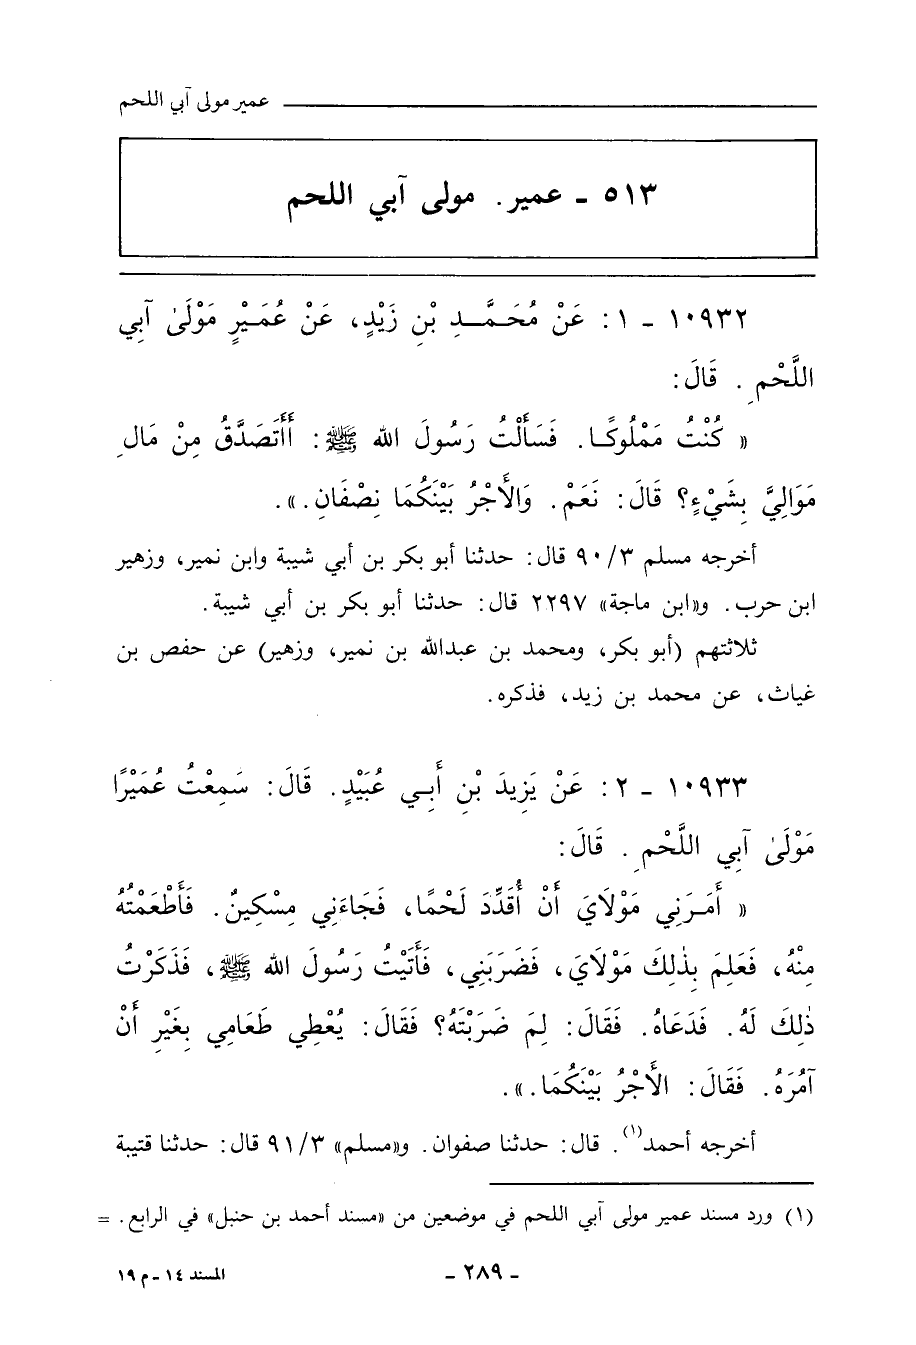 عمير مولى آبي اللحم
٥١٣ ـ عمير. مولى آبي اللحم
١٠٩٣٢ ـ ١: عَنْ مُحَمَّدِ بْنِ زَيْدٍ، عَنْ عُمَيْرٍ مَوْلَىٰ آبِي
اللَّحْمِ. قَالَ:
« كُنْتُ مَمْلُوكًا. فَسَأَلْتُ رَسُولَ الله ﷺ: أَأَتَصَدَّقُ مِنْ مَالِ
مَوَالِيَّ بِشَيْءٍ؟ قَالَ: نَعَمْ. وَالأَجْرُ بَيْنَكُمَا نِصْفَانِ.».
أخرجه مسلم ٩٠/٣ قال: حدثنا أبو بكر بن أبي شيبة وابن نمير، وزهير
ابن حرب. و«ابن ماجة» ٢٢٩٧ قال: حدثنا أبو بكر بن أبي شيبة.
ثلاثتهم (أبو بكر، ومحمد بن عبدالله بن نمير، وزهير) عن حفص بن
غياث، عن محمد بن زيد، فذكره.
١٠٩٣٣ ـ ٢: عَنْ يَزِيدَ بْنِ أَبِي عُبَيْدٍ. قَالَ: سَمِعْتُ عُمَيْرًا
مَوْلَىٰ آبِي اللَّحْمِ. قَالَ:
« أَمَرَنِي مَوْلَايَ أَنْ أُقَدِّدَ لَحْمًا، فَجَاءَنِي مِسْكِينٌ. فَأَطْعَمْتُهُ
مِنْهُ، فَعَلِمَ بِذٰلِكَ مَوْلَايَ، فَضَرَبَنِي، فَأَتَيْتُ رَسُولَ الله ﷺ، فَذَكَرْتُ
ذٰلِكَ لَهُ. فَدَعَاهُ. فَقَالَ: لِمَ ضَرَبْتَهُ؟ فَقَالَ: يُعْطِي طَعَامِي بِغَيْرِ أَنْ
آمُرَهُ. فَقَالَ: الأَجْرُ بَيْنَكُمَا.».
أخرجه أحمد(١). قال: حدثنا صفوان. و«مسلم» ٩١/٣ قال: حدثنا قتيبة
(١) ورد مسند عمير مولى آبي اللحم في موضعين من «مسند أحمد بن حنبل» في الرابع. =
ـ ٢٨٩ ـ
المسند ١٤ ـ م ١٩